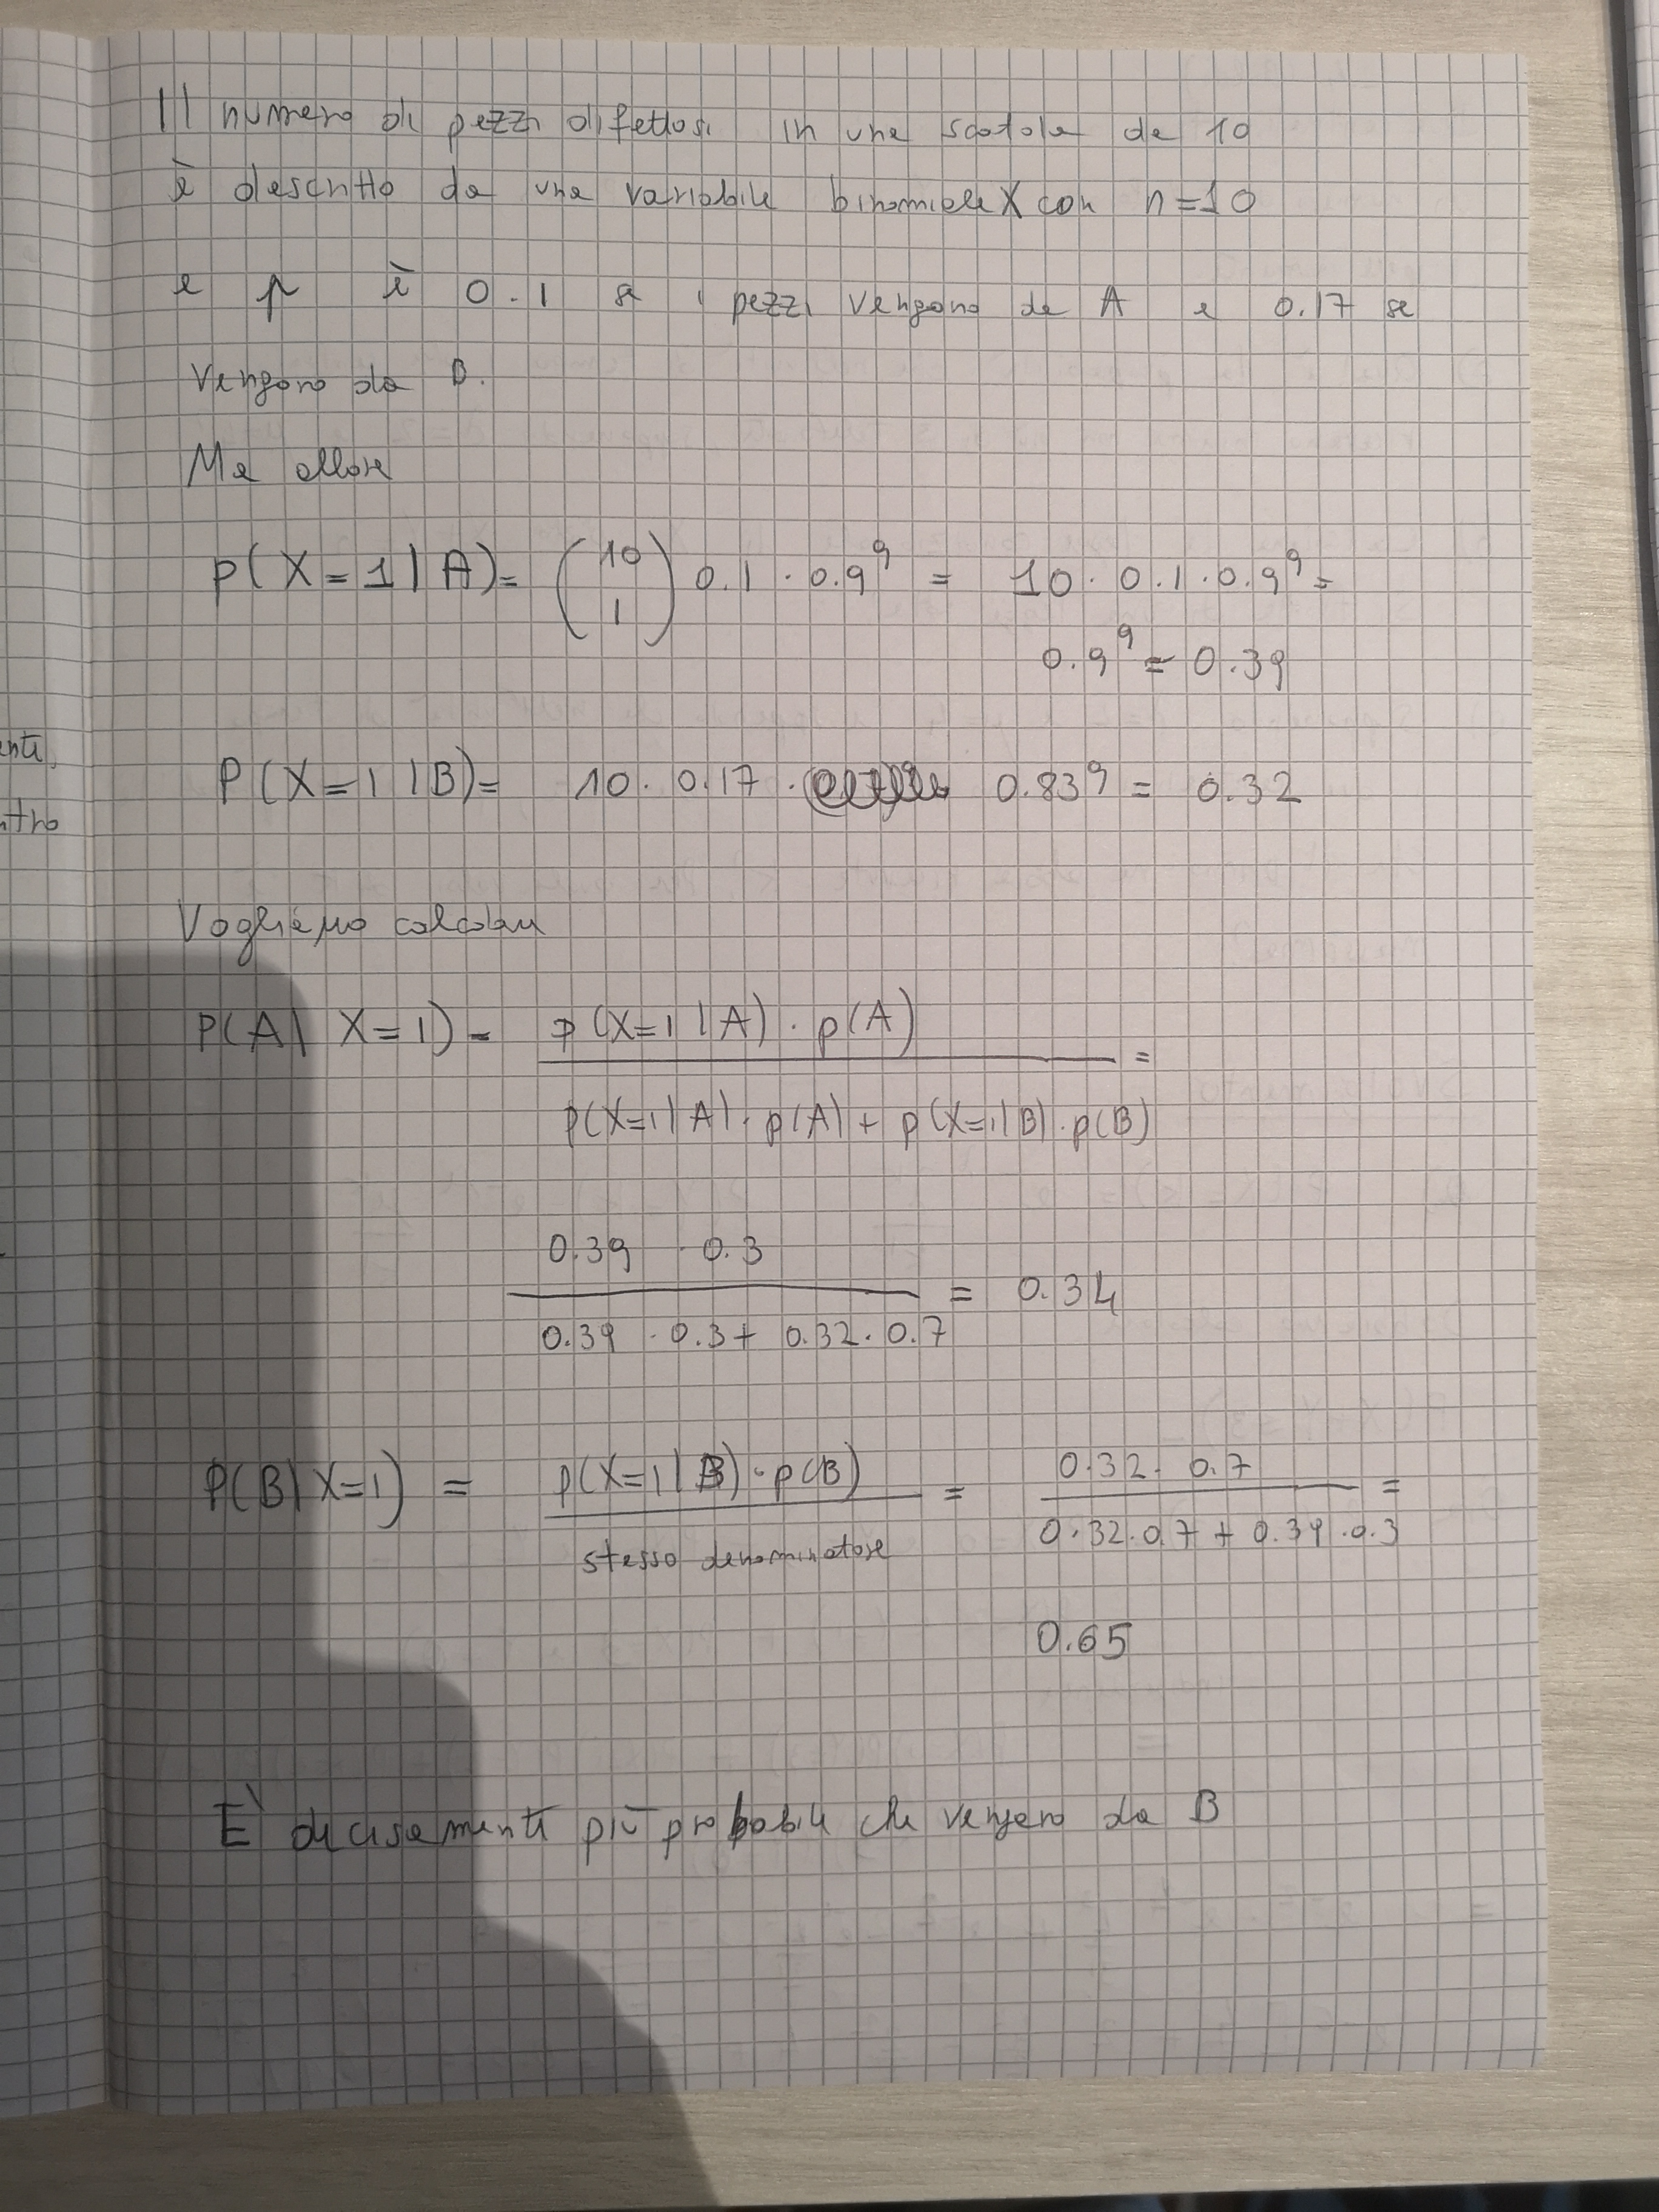 Il numero di pezzi difettosi in una scatola da 10
è descritto da una variabile binomiale X con n=10
e p è 0.1 se i pezzi vengono da A e 0.17 se
vengono da B.
Ma allora
P(X=1|A)= (10 1) 0.1 · 0.9⁹ = 10 · 0.1 · 0.9⁹ =
0.9⁹ = 0.39
P(X=1|B)= 10 · 0.17 · 0.83⁹ = 0.32
Vogliamo calcolare
P(A| X=1) = p(X=1|A) · p(A)
p(X=1|A) · p(A) + p(X=1|B) · p(B) =
0.39 · 0.3
0.39 · 0.3 + 0.32 · 0.7 = 0.34
P(B|X=1) = p(X=1|B) · p(B) = 0.32 · 0.7 =
stesso denominatore 0.32 · 0.7 + 0.39 · 0.3
0.65
È decisamente più probabile che vengano da B
enti,
ntro